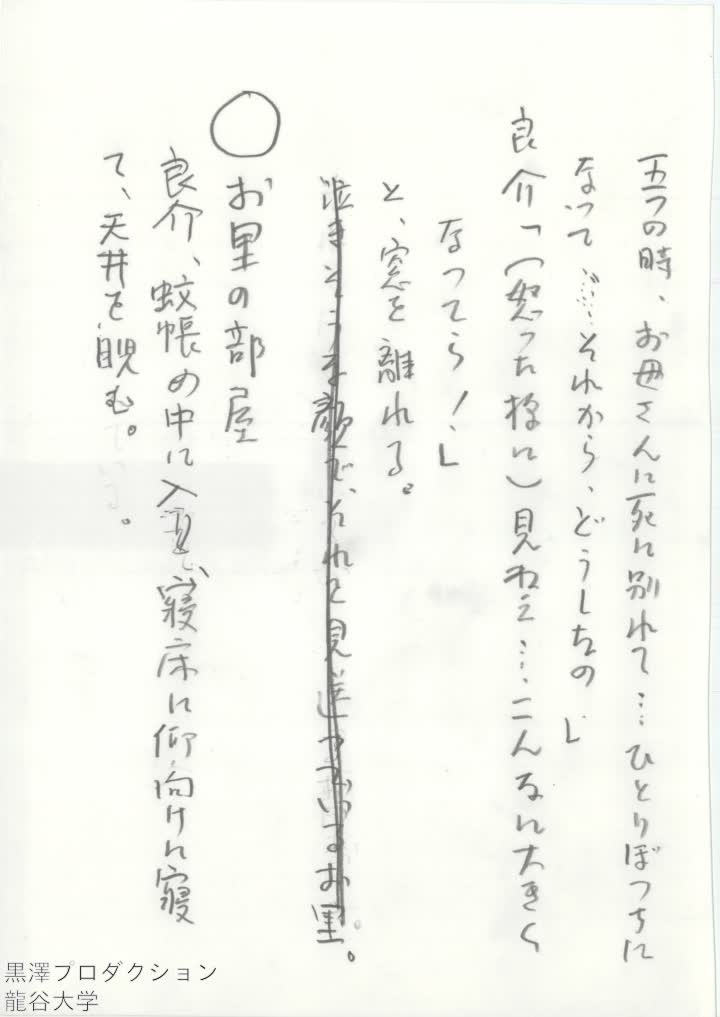 五つの時、お母さんに死に別れて…ひとりぼつちに
なつて……それから、どうしたの」
良介「(怒った様に)見ねえ……こんなに大きく
なつてら！」
と、窓を離れる。
泣きそうな顔で、それを見送つているお里。
○
お里の部屋
良介、蚊帳の中に入り、寝床に仰向けに寝
て、天井を睨む。
黒澤プロダクション
龍谷大学